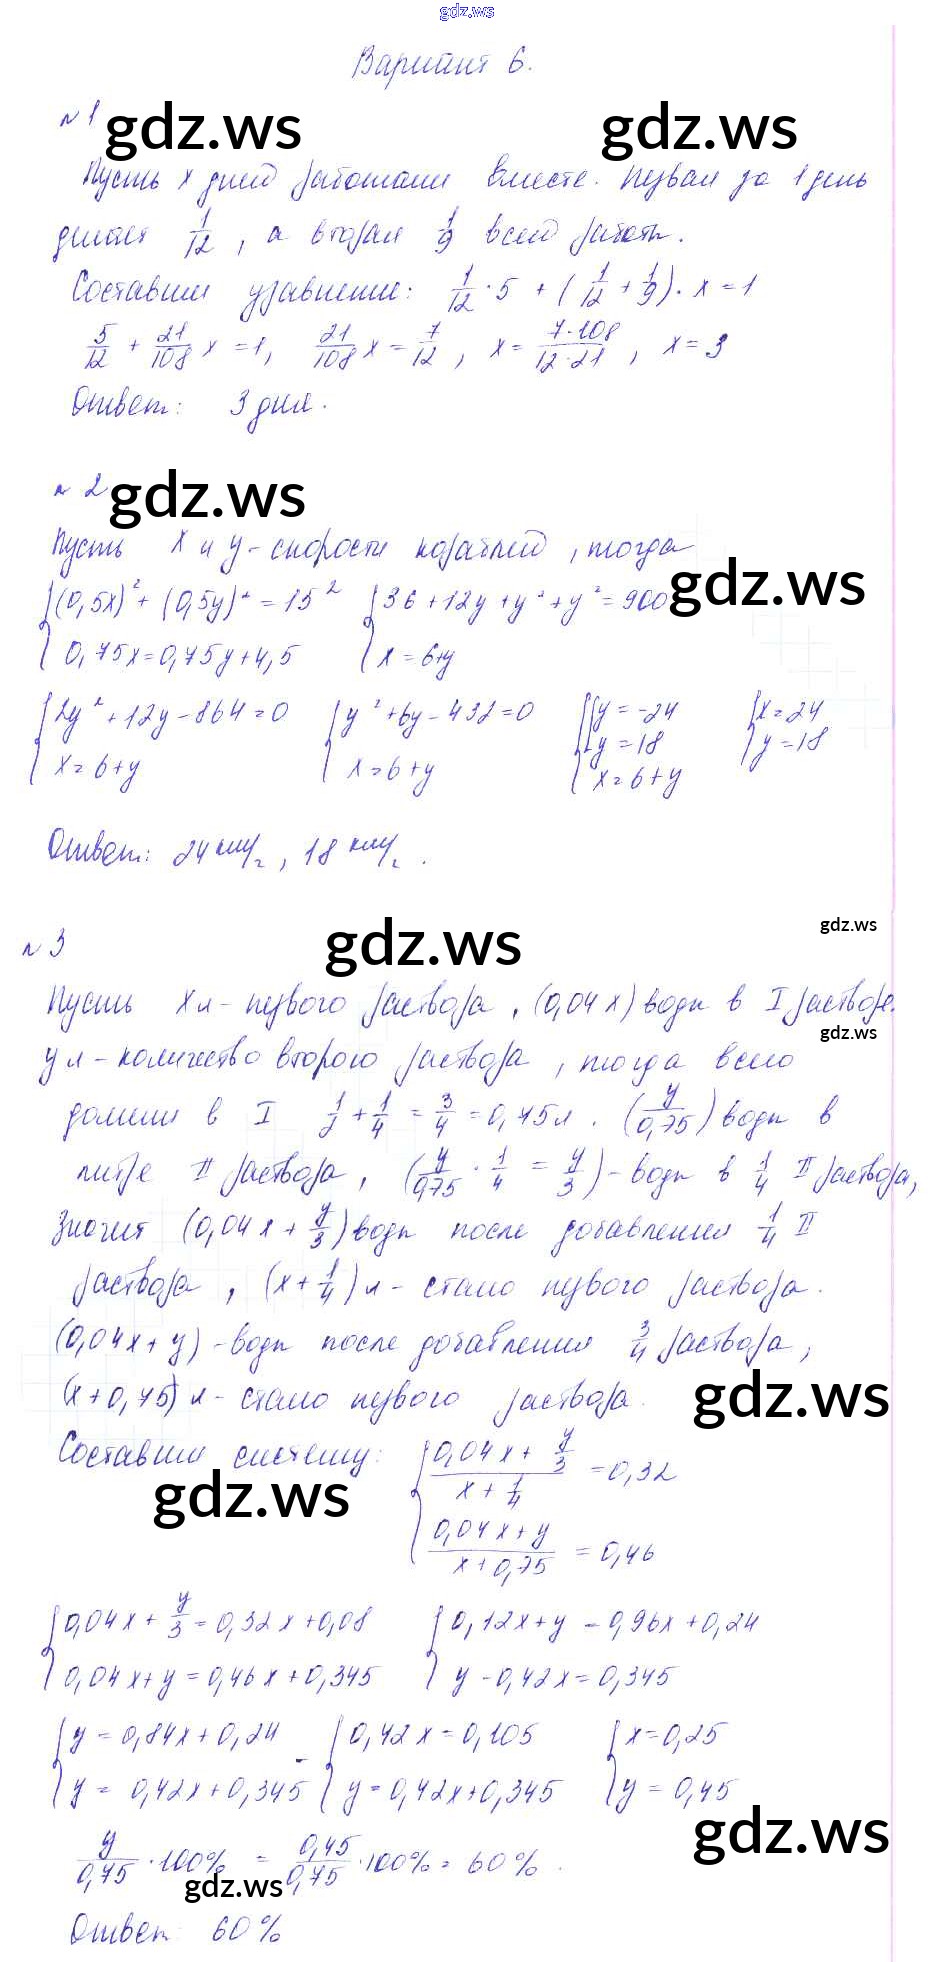 gdz.ws
Вариант 6.
№1
gdz.ws gdz.ws
Пусть x дней работали вместе. Первая за 1 день
делает 1/12, а вторая 1/9 всей работы.
Составим уравнение: 1/12 · 5 + (1/12 + 1/9) · x = 1
5/12 + 21/108 x = 1, 21/108 x = 7/12, x = 7·108/12·21, x = 3
Ответ: 3 дня.
№2
gdz.ws
Пусть x и y - скорости кораблей, тогда
gdz.ws
{(0,5x)² + (0,5y)² = 15² {36 + 12y + y² + y² = 900
0,75x = 0,75y + 4,5 x = 6+y
{2y² + 12y - 864 = 0 {y² + 6y - 432 = 0 {[y = -24 {x = 24
y = 18 y = 18
x = 6 + y x = 6 + y x = 6 + y
Ответ: 24 км/ч, 18 км/ч.
№3
gdz.ws
gdz.ws
Пусть x л - первого раствора, (0,04x) воды в I растворе.
gdz.ws
y л - количество второго раствора, тогда всего
долили в I 1/2 + 1/4 = 3/4 = 0,75 л. (y/0,75) воды в
литре II раствора, (y/0,75 · 1/4 = y/3) - воды в 1/4 II раствора,
Значит (0,04x + y/3) воды после добавления 1/4 II
раствора, (x + 1/4) л - стало первого раствора.
(0,04x + y) - воды после добавления 3/4 раствора,
(x + 0,75) л - стало первого раствора.
gdz.ws
Составим систему: {0,04x + y/3 / x + 1/4 = 0,32
gdz.ws
0,04x + y / x + 0,75 = 0,46
{0,04x + y/3 = 0,32x + 0,08 {0,12x + y = 0,96x + 0,24
0,04x + y = 0,46x + 0,345 y - 0,42x = 0,345
{y = 0,84x + 0,24 - {0,42x = 0,105 {x = 0,25
y = 0,42x + 0,345 y = 0,42x + 0,345 y = 0,45
gdz.ws
y/0,75 · 100% = 0,45/0,75 · 100% = 60%.
gdz.ws
Ответ: 60%